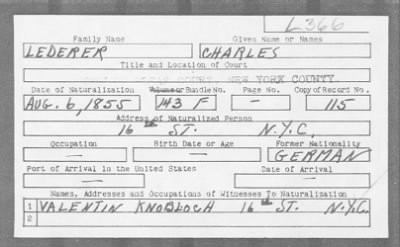 L366
Family Name Given Name or Names
LEDERER CHARLES
Title and Location of Court
COURT, NEW YORK COUNTY.
Date of Naturalization Volume or Bundle No. Page No. Copy of Record No.
AUG. 6, 1855 F — 115
Address of Naturalized Person
16TH ST. N.Y.C.
Occupation Birth Date or Age Former Nationality
— — GERMAN
Port of Arrival in the United States Date of Arrival
— —
Names, Addresses and Occupations of Witnesses To Naturalization
1 VALENTIN KNOBLOCH 16TH ST. N.Y.C.
2